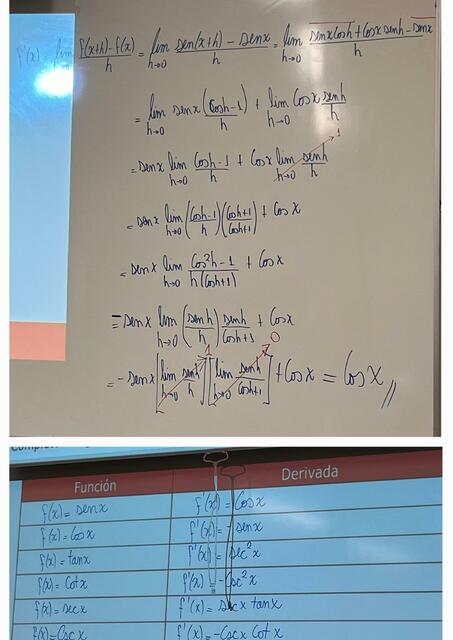 f'(x) = lim f(x+h)-f(x)/h = lim h→0 sen(x+h) - senx/h = lim h→0 senx cosh + cosx senh - senx/h
= lim h→0 senx (Cosh-1/h) + lim h→0 Cosx senh/h
= senx lim h→0 Cosh-1/h + Cosx lim h→0 senh/h 1
= senx lim h→0 (Cosh-1/h)(Cosh+1/Cosh+1) + Cosx
= senx lim h→0 Cos²h-1/h(Cosh+1) + Cosx
= -senx lim h→0 (senh/h) senh/Cosh+1 + Cosx
= -senx [lim h→0 senh/h] 1 [lim h→0 senh/Cosh+1] 0 + Cosx = Cosx
Función Derivada
f(x) = senx f'(x) = Cosx
f(x) = Cosx f'(x) = -senx
f(x) = tanx f'(x) = sec²x
f(x) = Cotx f'(x) = -Csc²x
f(x) = secx f'(x) = secx tanx
f(x) = Cscx f'(x) = -Cscx Cotx